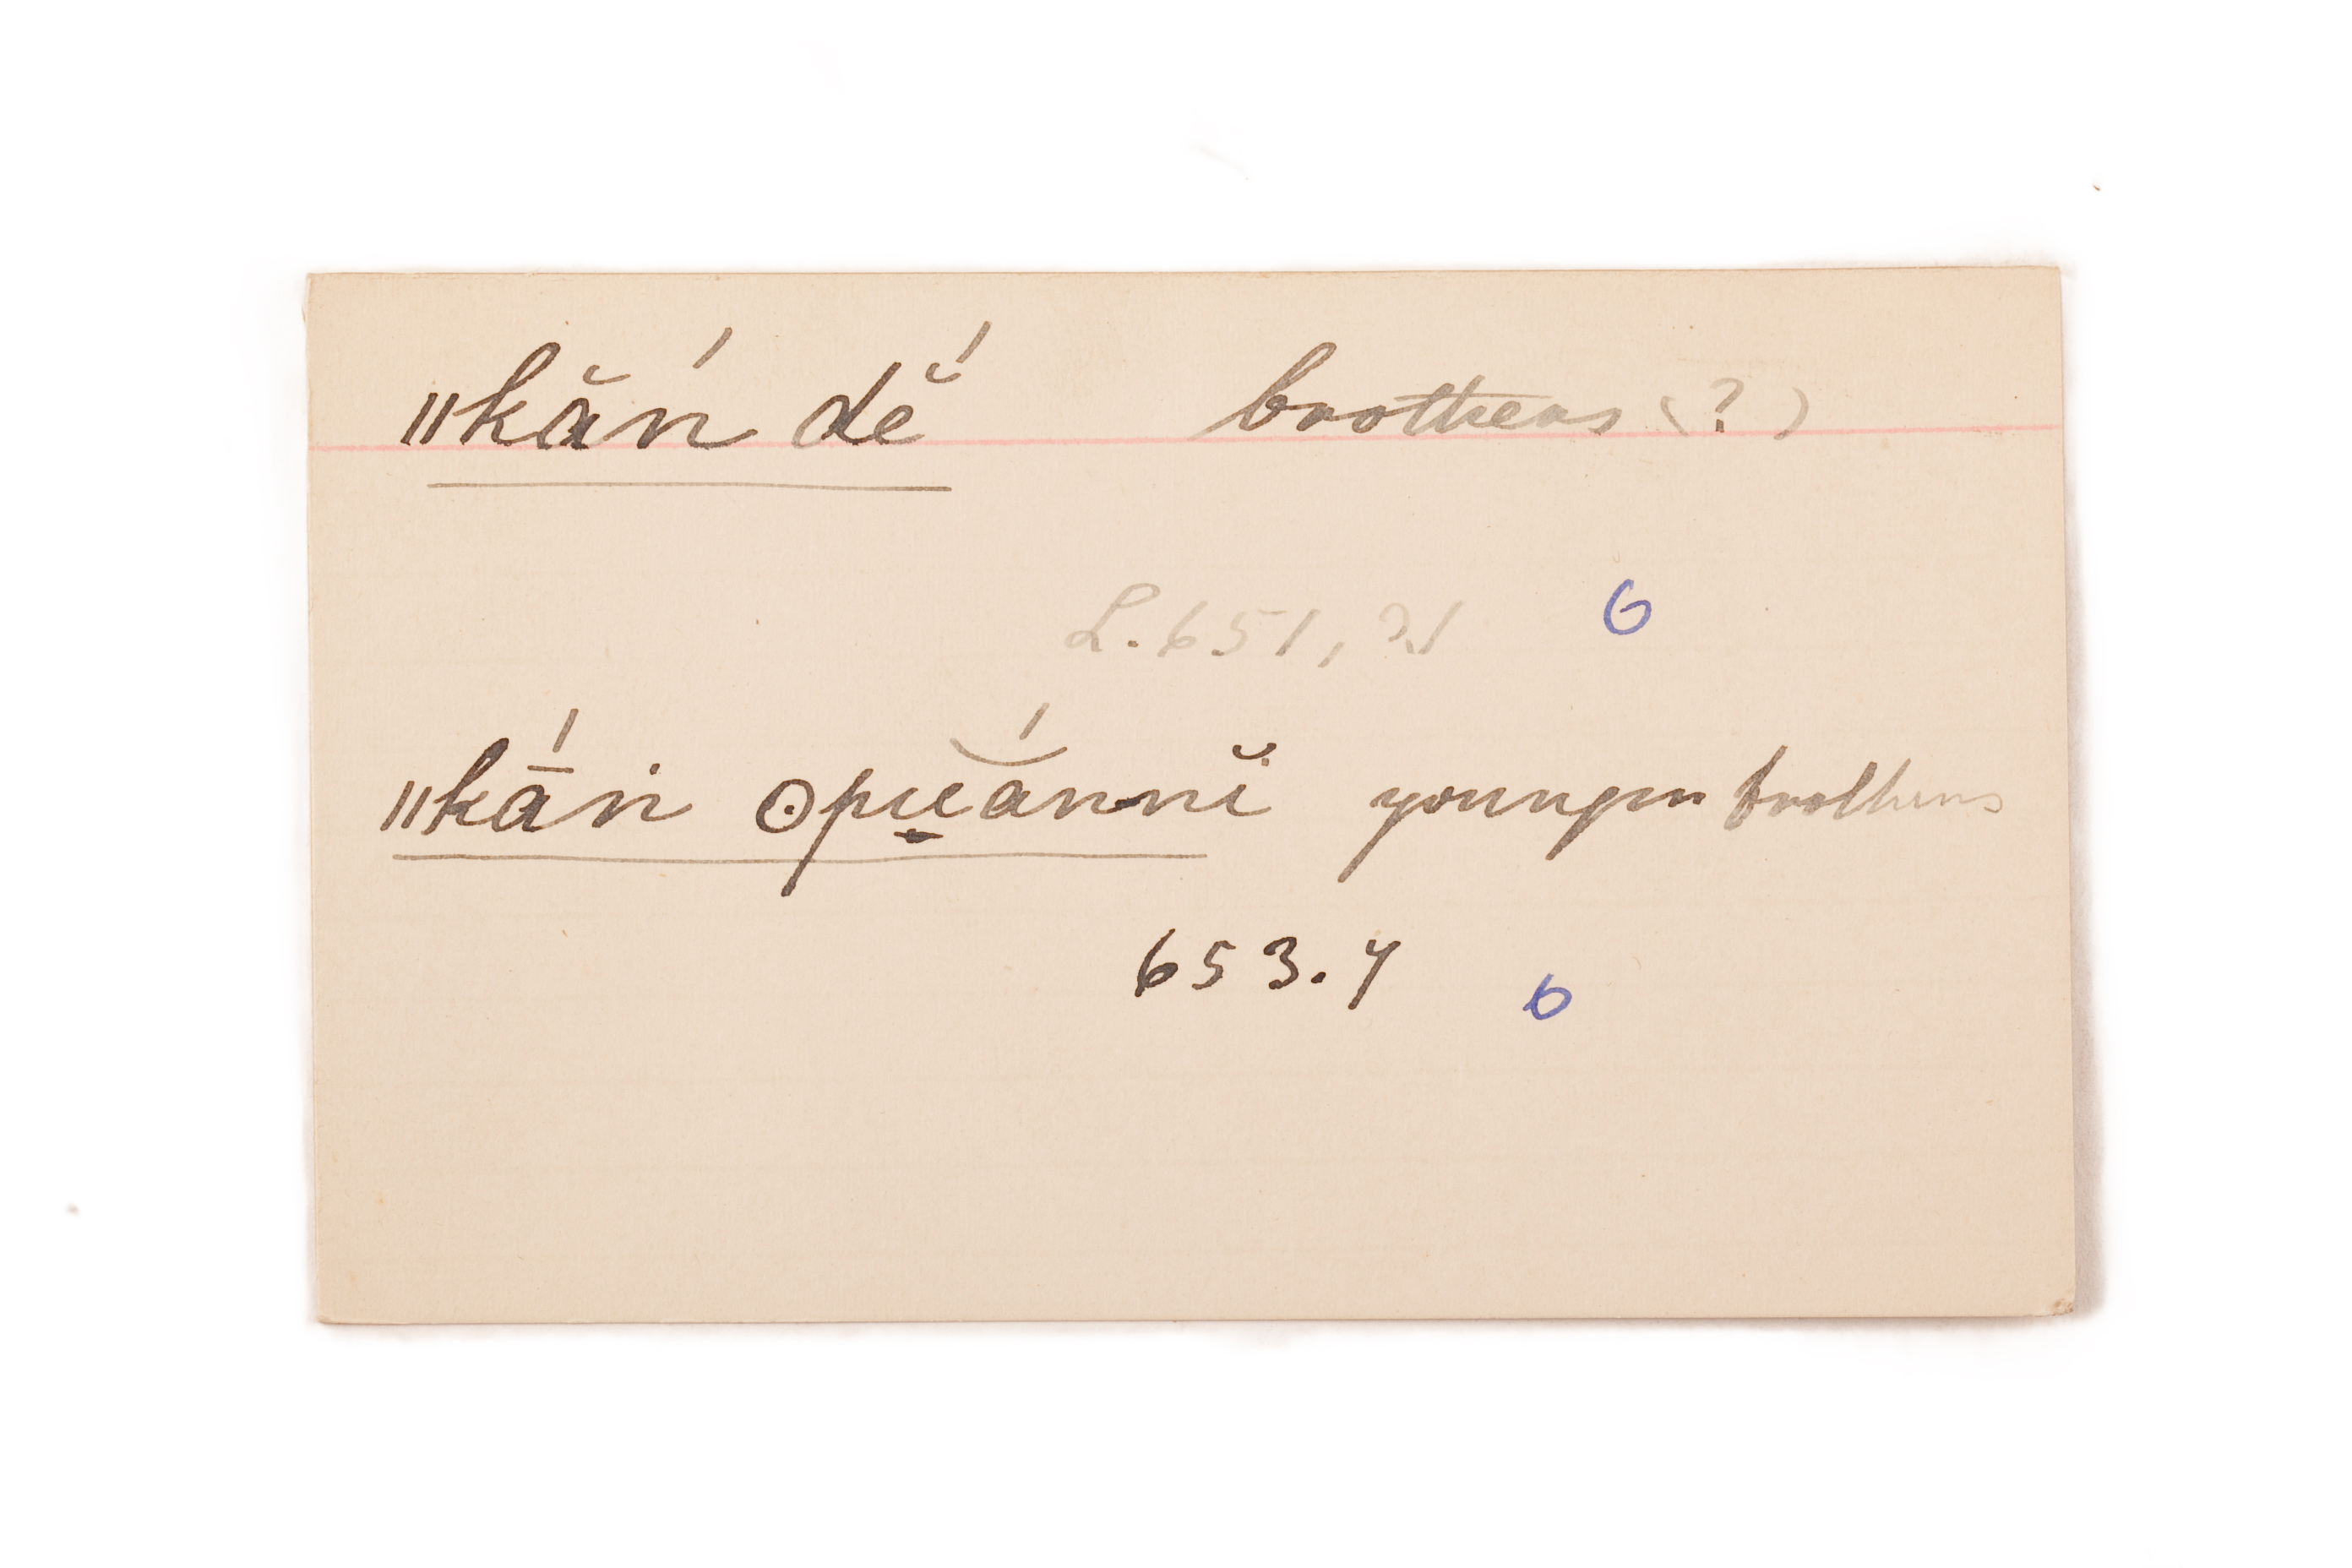 ǁkăń dĕ́ brothers (?)
L.651, 21 6
ǁkā́n ʘpu̱ánnĭ younger brothers
653.7 6